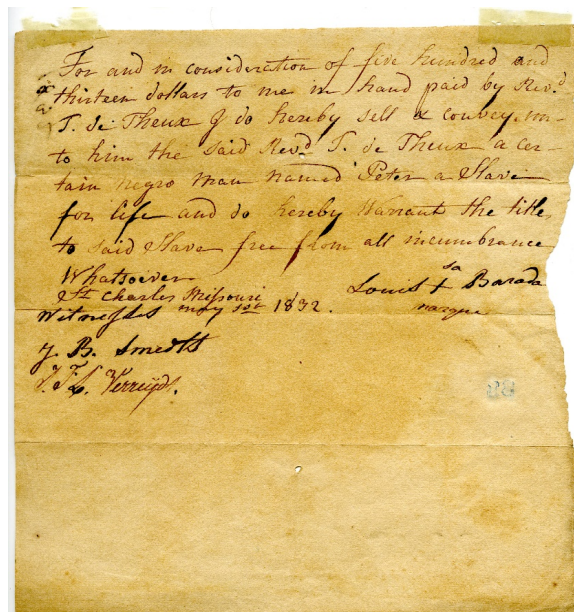 For and in consideration of five hundred and
thirteen dollars to me in hand paid by Revd
T. de Theux I do hereby sell & convey un-
to him the said Revd T. de Theux a cer-
tain negro man named Peter a Slave
for life and do hereby Warrant the title
to said Slave free from all incumbrance
Whatsoever
sa
Louis + Barada
marque
St Charles Missouri
Witnesses may 1st 1832.
J. B. Smedts
Verreydt.